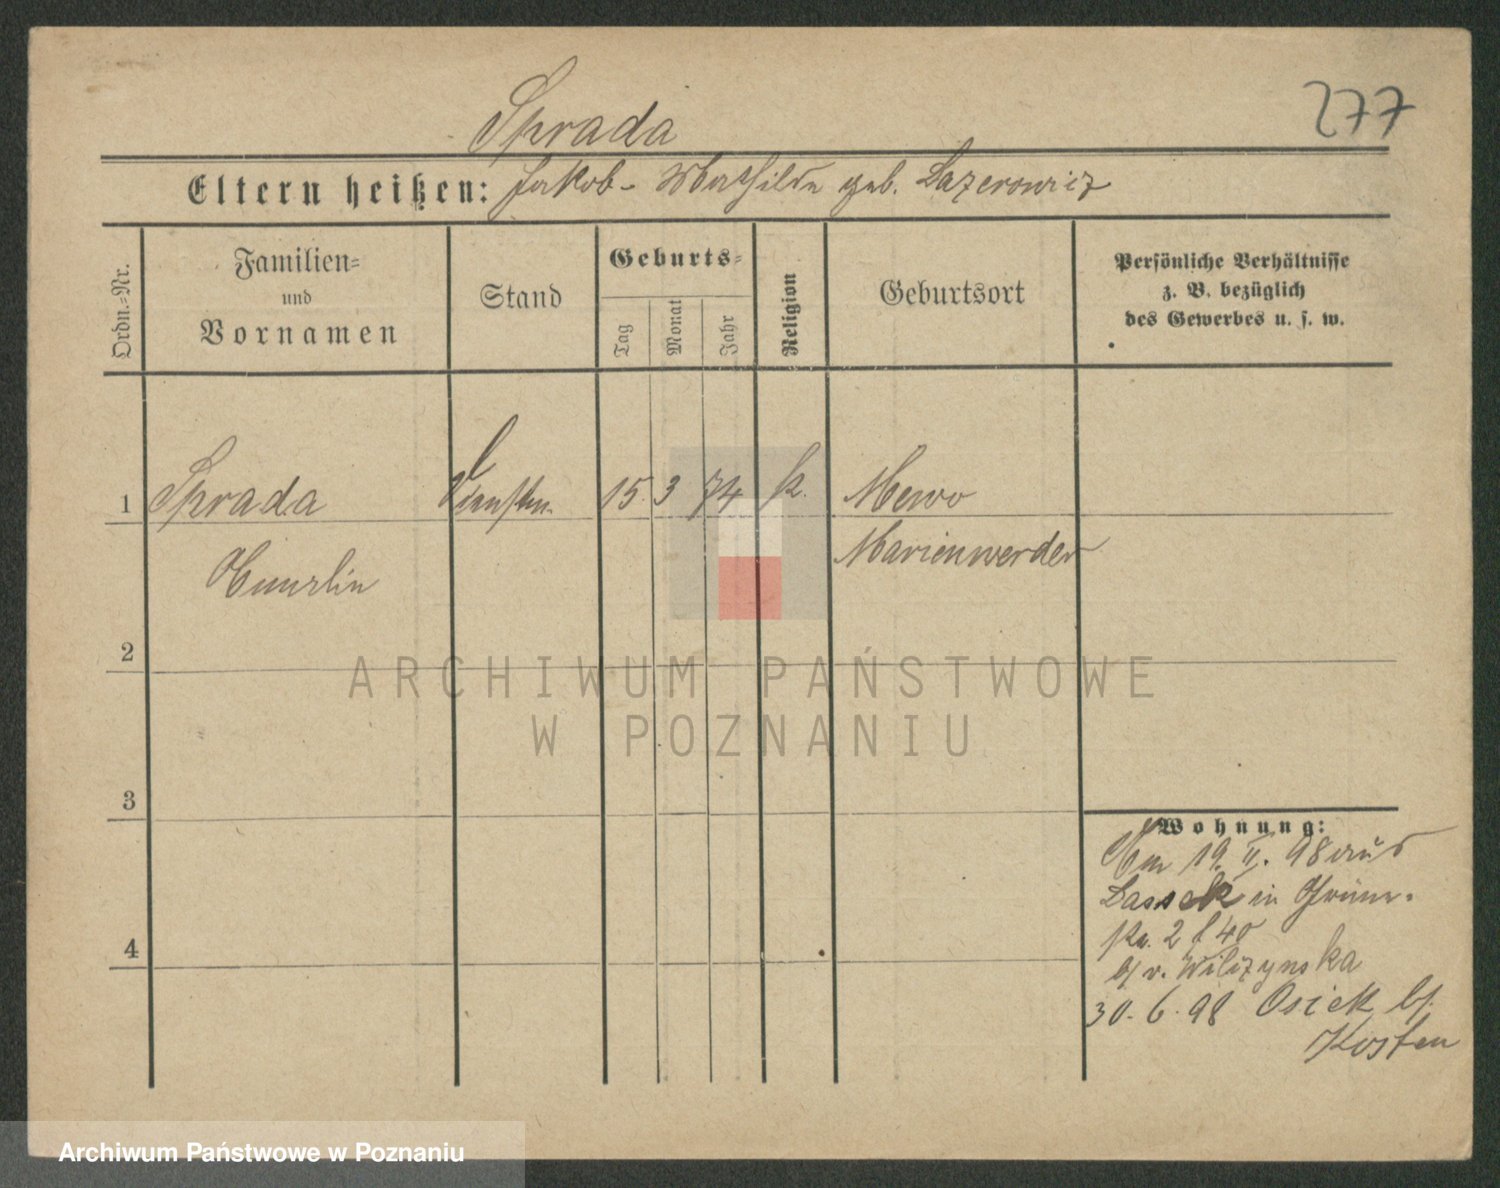 277
Sprada
Eltern heißen: Jakob - Mathilde geb. Lazerowicz
Ordn.-Nr.
Familien-
und
Vornamen
Stand
Geburts-
Tag
Monat
Jahr
Religion
Geburtsort
Persönliche Verhältnisse
z. B. bezüglich
des Gewerbes u. s. w.
1 Sprada 15. 3 74 k. Mewo
Marienwerder
2
3
4
Wohnung:
19. II. 98 aus
Lassek in
2
b/ v. Wilczynska
30. 6. 98 Osiek b/.
Kosten
ARCHIWUM PAŃSTWOWE
W POZNANIU
Archiwum Państwowe w Poznaniu